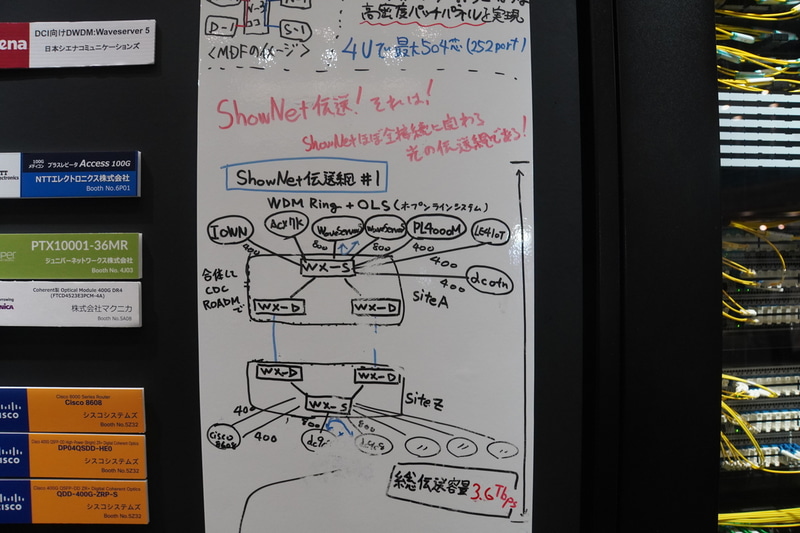 DCI向けDWDM:Waveserver 5
日本シエナコミュニケーションズ
100G
メディコン プラスレピータ Access 100G
NTTエレクトロニクス株式会社
Booth No.6P01
PTX10001-36MR
ジュニパーネットワークス株式会社
Booth No. 4J03
Coherent製 Optical Module 400G DR4
(FTCD4523E3PCM-4A)
株式会社マクニカ
Booth No.5A08
Cisco 8000 Series Router
Cisco 8608
シスコシステムズ
Booth No.5Z32
DP04QSDD-HE0
シスコシステムズ
Booth No.5Z32
QDD-400G-ZRP-S
シスコシステムズ
Booth No.5Z32
D-1
S-1
<MDFのイメージ>
高密度パッチパネルを実現
4Uで最大504芯(252port)
ShowNet伝送!それは!
ShowNetほぼ全接続に関わる
光の伝送網である!
ShowNet伝送網 #1
WDM Ring + OLS(オープンラインシステム)
IOWN
PL4000M
400
800
800
400
WX-S
400
400
dcotn
合体して
CDC
ROADMで
WX-D
WX-D
SiteA
WX-D
WX-D
WX-S
SiteZ
400
400
800
800
Cisco
8608
〃
〃
〃
総伝送容量 3.6Tbps